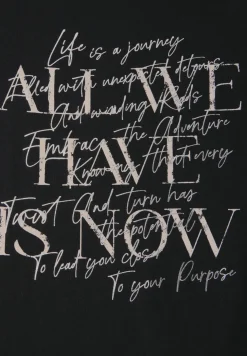 Life is a journey
Filled with unexpected detours
ALL WE
And winding Roads
Embrace the Adventure
HAVE
Knowing that every
twist And Turn has
the potential
IS NOW
To lead you closer
To your Purpose